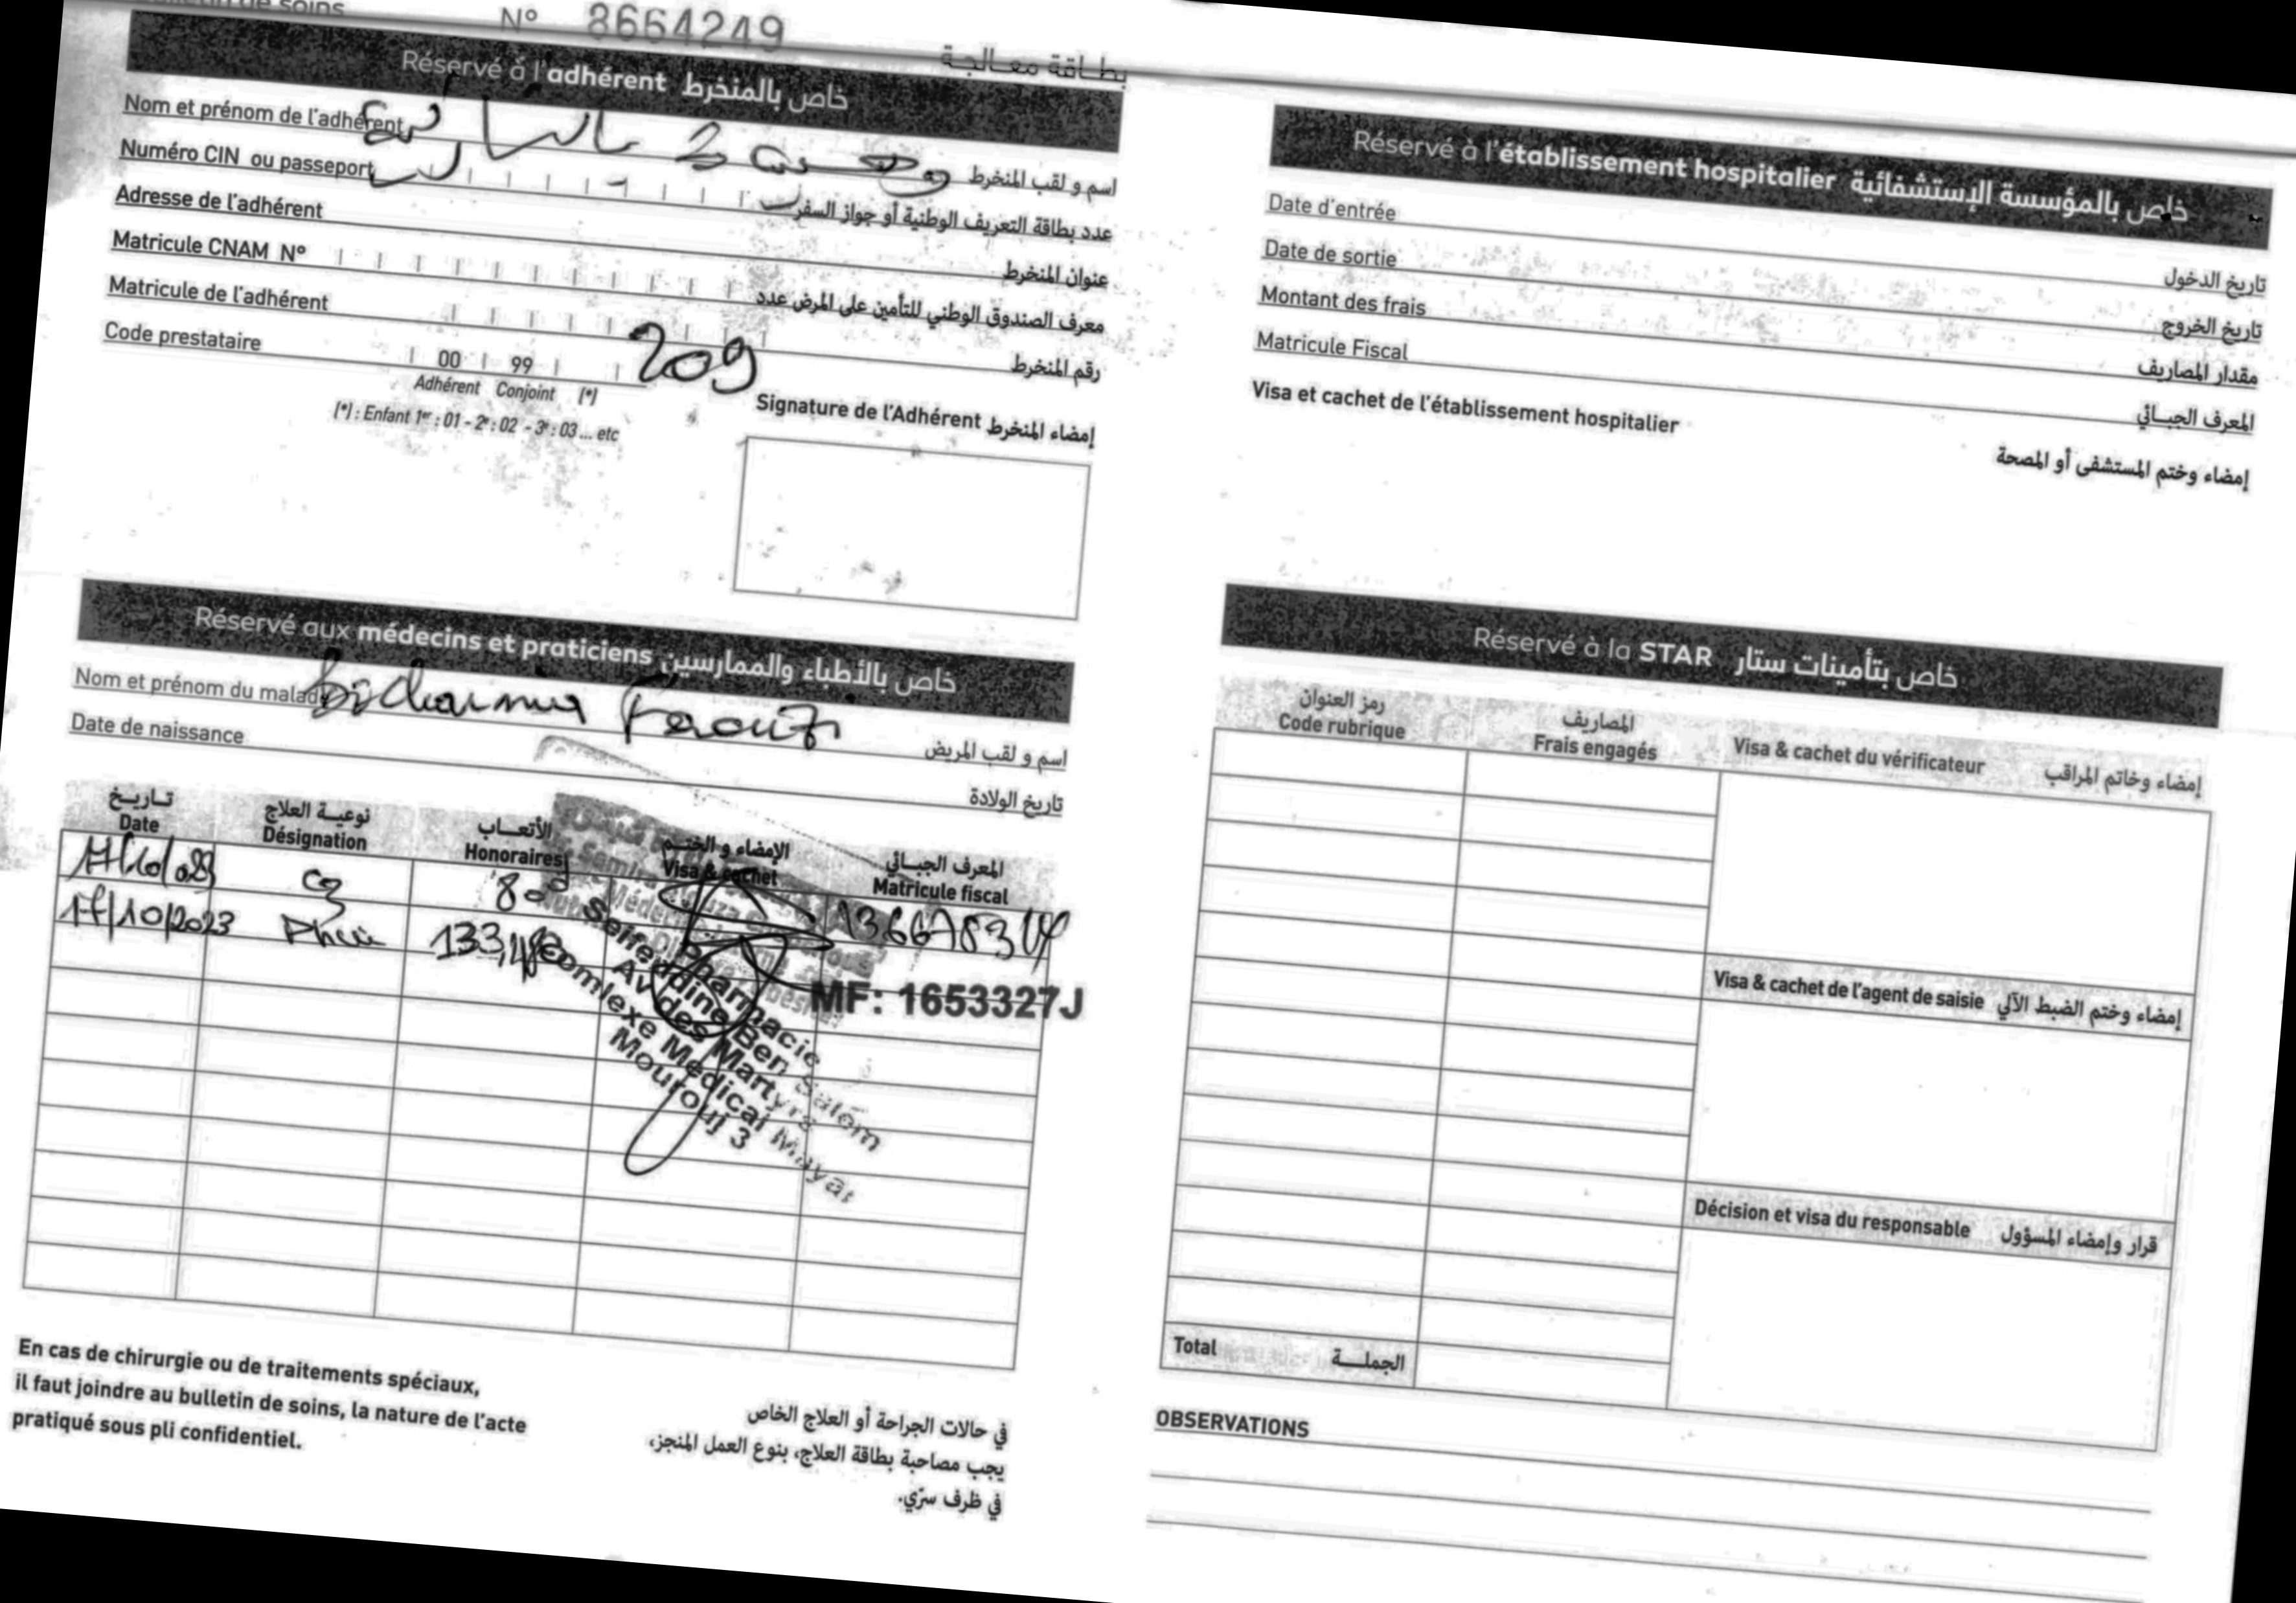 de soins N° 8664249 بطاقة معالجة
Réservé à l'adhérent خاص بالمنخرط
Nom et prénom de l'adhérent اسم و لقب المنخرط
Numéro CIN ou passeport عدد بطاقة التعريف الوطنية أو جواز السفر
Adresse de l'adhérent عنوان المنخرط
Matricule CNAM N° معرف الصندوق الوطني للتأمين على المرض عدد
Matricule de l'adhérent رقم المنخرط
209
Code prestataire 00 99
Adhérent Conjoint (*)
(*) : Enfant 1er : 01 - 2e : 02 - 3e : 03 ... etc
Signature de l'Adhérent إمضاء المنخرط
Réservé aux médecins et praticiens خاص بالأطباء والممارسين
Nom et prénom du malade Faouzi اسم و لقب المريض
Date de naissance تاريخ الولادة
تاريخ نوعية العلاج الأتعاب الإمضاء و الختم المعرف الجبائي
Date Désignation Honoraires Visa & cachet Matricule fiscal
80
17/10/2023 133,480
MF: 1653327J
Pharmacie
Seifeddine Ben Salem
Av des Martyrs
Comlexe Médical Mayar
Mourouj 3
En cas de chirurgie ou de traitements spéciaux,
il faut joindre au bulletin de soins, la nature de l'acte
pratiqué sous pli confidentiel.
في حالات الجراحة أو العلاج الخاص
يجب مصاحبة بطاقة العلاج، بنوع العمل المنجز،
في ظرف سرّي.
Réservé à l'établissement hospitalier خاص بالمؤسسة الإستشفائية
Date d'entrée تاريخ الدخول
Date de sortie تاريخ الخروج
Montant des frais مقدار المصاريف
Matricule Fiscal المعرف الجبائي
Visa et cachet de l'établissement hospitalier إمضاء وختم المستشفى أو المصحة
Réservé à la STAR خاص بتأمينات ستار
رمز العنوان المصاريف
Code rubrique Frais engagés Visa & cachet du vérificateur إمضاء وخاتم المراقب
Visa & cachet de l'agent de saisie إمضاء وختم الضبط الآلي
Décision et visa du responsable قرار وإمضاء المسؤول
Total الجملة
OBSERVATIONS